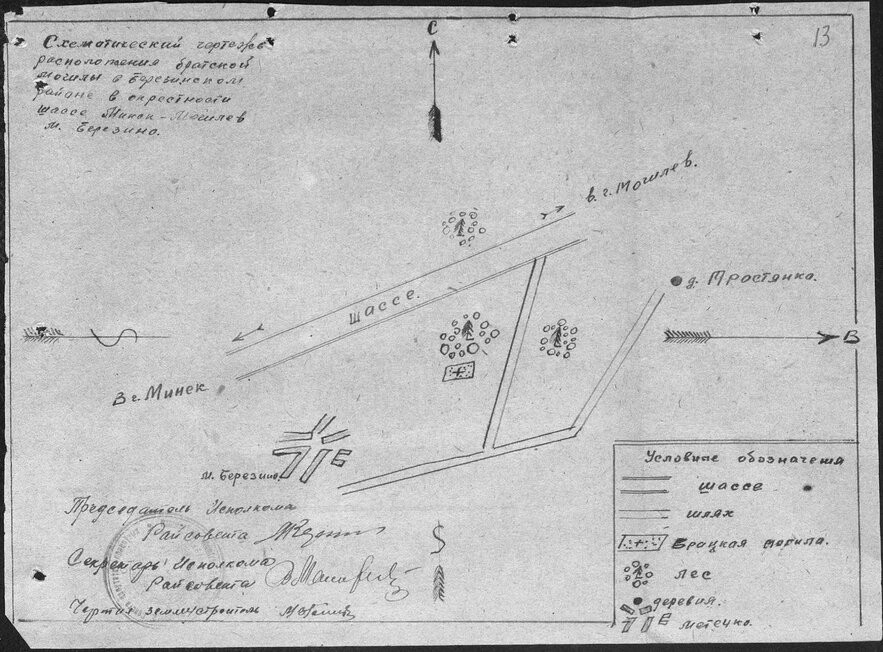 13
С
Схематический чертеж
расположения братской
могилы в Березинском
районе в окрестности
шассе Минск-Могилев
м. Березино.
в. г. Могилев.
д. Тростянка.
шассе.
В
В г. Минск
м. Березино
Условные обозначения
шассе
шлях
Брацкая могила.
лес
деревня.
местечко.
Председатель Исполкома
Райсовета
Секретарь Исполкома
Райсовета
Чертил землустроитель